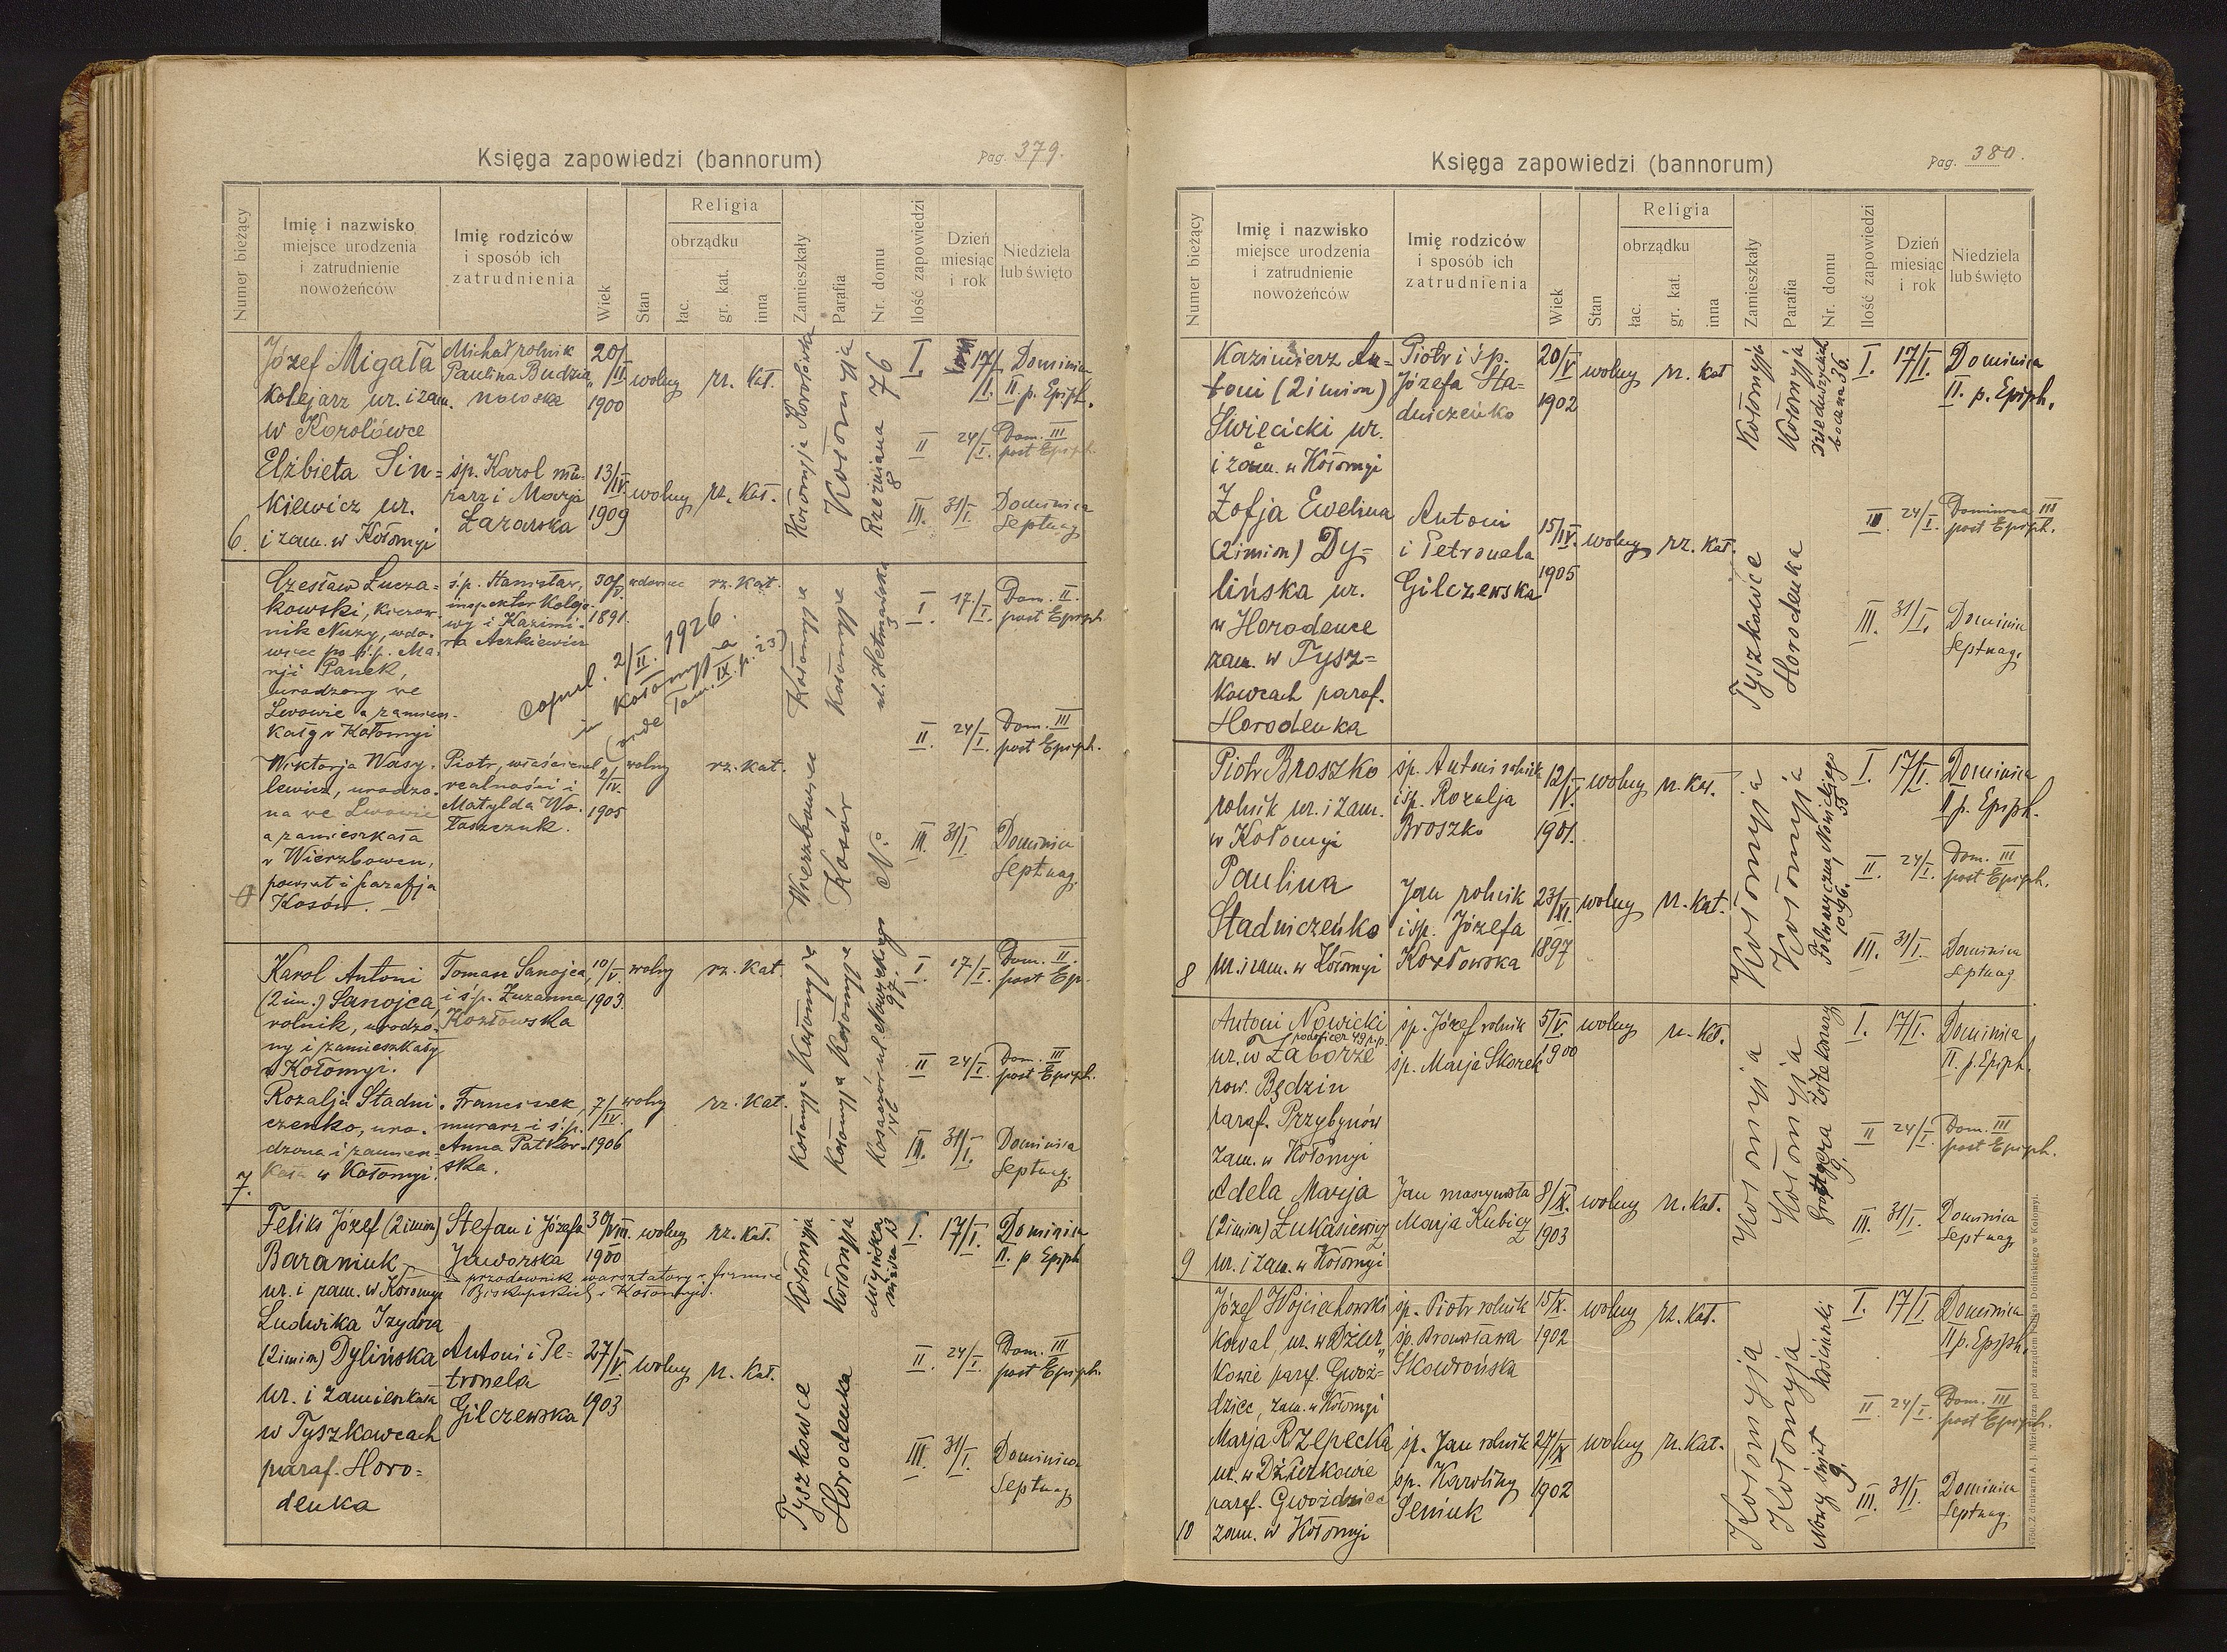 Księga zapowiedzi (bannorum)
Pag. 379.
Numer bieżący
Imię i nazwisko
miejsce urodzenia
i zatrudnienie
nowożeńców
Imię rodziców
i sposób ich
zatrudnienia
Wiek
Stan
Religia
obrządku
łac.
gr. kat.
inna
Zamieszkały
Parafia
Nr. domu
Ilość zapowiedzi
Dzień
miesiąc
i rok
Niedziela
lub święto
6.
Józef Migała
kolejarz ur. i zam.
w Korolówce
Michał rolnik
Paulina Budzia„
nowska
20/II
1900
wolny
rz. kat.
Kołomyja Korolówka
Kołomyja
76
I.
17/I.
Dominica
II. p. Epiph.
II
24/I.
Dom. III
post Epiph.
Elżbieta Sin=
kiewicz ur.
i zam. w Kołomyi
śp. Karol mu-
rarz i Marja
Łazarska
13/IV.
1909
wolny
rz. kat.
Kołomyja
Rzeźniana 8
III.
31/I.
Dominica
Septuag.
Czesław Lucza=
kowski, kierow
nik Nuzy, wdo-
wiec po ś.p. Ma-
rji Panek,
urodzony we
Lwowie a zamiesz-
kały w Kołomyi
ś.p. Stanisław,
inspektor kolejo-
wy i Kazimi-
ra Aczkiewicz
30/V.
1891.
wdowiec
rz. kat.
copul. 2/II. 1926.
in Kołomyja
(vide Tom. IX. p. 23)
Kołomyja
Kołomyja
ul. Hetmańska
I
17/I.
Dom. II.
post Epiph.
II.
24/I.
Dom. III
post Epiph.
Wiktorja Wasy-
lewicz, urodzo-
na we Lwowie
a zamieszkała
w Wierzbowcu,
powiat i parafja
Kosów. —
Piotr, właściciel
realności i
Matylda Wo-
łoszczuk.
2/IV.
1905
wolny
rz. kat.
Wierzbowiec
Kosów
No
III.
31/I
Dominica
Septuag.
7.
Karol Antoni
(2 im.) Sanojca,
rolnik, urodzo-
ny i zamieszkały
w Kołomyi.
Tomasz Sanojca,
i ś.p. Zuzanna
Kozłowska
10/V.
1903.
wolny
rz. kat.
Kołomyja
Kołomyja
97.
I.
17/I.
Dom. II.
post Ep.
II
24/I.
Dom. III
post Epiph.
Rozalja Stadni-
czenko, uro-
dzona i zamiesz-
kała w Kołomyi.
Franciszek,
murarz i ś.p.
Anna Patkow-
ska.
7/IV.
1906
wolny
rz. kat.
Kołomyja
Kołomyja
III.
31/I.
Dominica
Septuag.
Feliks Józef (2 imion)
Baraniuk
ur. i zam. w Kołomyi
Stefan i Józefa
Jaworska
przodownik warsztatowy w firmie
Biskupskich w Kołomyi.
30/VIII.
1900
wolny
rz. kat.
Kołomyja
Kołomyja
Młyńska
I.
17/I.
Dominica
II. p Epiph
Ludwika Izydora
(2 imion) Dylińska
ur. i zamieszkała
w Tyszkowcach
paraf. Horo=
denka
Antoni i Pe=
tronela
Gilczewska
27/V.
1903
wolny
rz. kat.
Tyszkowce
Horodenka
II.
24/I.
Dom. III
post Epiph.
III.
31/I.
Dominica
Septuag.
Księga zapowiedzi (bannorum)
Pag. 380.
Numer bieżący
Imię i nazwisko
miejsce urodzenia
i zatrudnienie
nowożeńców
Imię rodziców
i sposób ich
zatrudnienia
Wiek
Stan
Religia
obrządku
łac.
gr. kat.
inna
Zamieszkały
Parafia
Nr. domu
Ilość zapowiedzi
Dzień
miesiąc
i rok
Niedziela
lub święto
Kazimierz An=
toni (2 imion)
Święcicki ur.
i zam. w Kołomyi
Piotr i śp.
Józefa Sta=
dniczeńko
20/V
1902
wolny
rz. kat
Kołomyja
Kołomyja
36.
I.
17/I.
Dominica
II. p. Epiph.
Zofja Ewelina
(2 imion) Dy=
lińska ur.
w Horodence
zam. w Tysz=
kowcach paraf.
Horodenka
Antoni
i Petronela
Gilczewska
15/IV.
1905
wolny
rz. kat.
Tyszkowce
Horodenka
II
24/I.
Dominica III
post Epiph.
III.
31/I.
Dominica
Septuag.
8
Piotr Broszko
rolnik ur. i zam.
w Kołomyi
śp. Antoni rolnik
i śp. Rozalja
Broszko
12/V.
1901.
wolny
rz. kat.
Kołomyja
Kołomyja
I.
17/I.
Dominica
II p. Epiph.
II.
24/I.
Dom. III
post Epiph.
Paulina
Stadniczeńko
ur. i zam. w Kołomyi
Jan rolnik
i śp. Józefa
Kozłowska
23/XI.
1897
wolny
rz. kat.
III.
31/I.
Dominica
Septuag
9
Antoni Nowicki
podoficer 49 p.p.
ur. w Zaborze
pow. Będzin
paraf. Przybynów
zam. w Kołomyi
śp. Józef rolnik
śp. Marja Skorek
5/V.
1900
wolny
rz. kat.
Kołomyja
Kołomyja
I.
17/I.
Dominica
II. p. Epiph.
II
24/I.
Dom. III
post Epiph.
Adela Marja
(2 imion) Łukasiewicz
ur. i zam. w Kołomyi
Jan maszynista
Marja Kubicz
8/IX.
1903
wolny
rz. kat.
III.
31/I.
Dominica
Septuag.
10
Józef Wojciechowski
kowal, ur. w Dżur„
kowie paraf. Gwoź=
dziec, zam. w Kołomyi
śp. Piotr rolnik
śp. Bronisława
Skowrońska
15/IX.
1902
wolny
rz. kat.
Kołomyja
Kołomyja
Nowy Świat
9.
I.
17/I.
Dominica
II p. Epiph.
II.
24/I.
Dom. III
post Epiph.
Marja Rzepecka
ur. w Dżurkowie
paraf. Gwoździec
zam. w Kołomyi
śp. Jan rolnik
śp. Karoliny
Seniuk
27/IX
1902
wolny
rz. kat.
III.
31/I.
Dominica
Septuag.